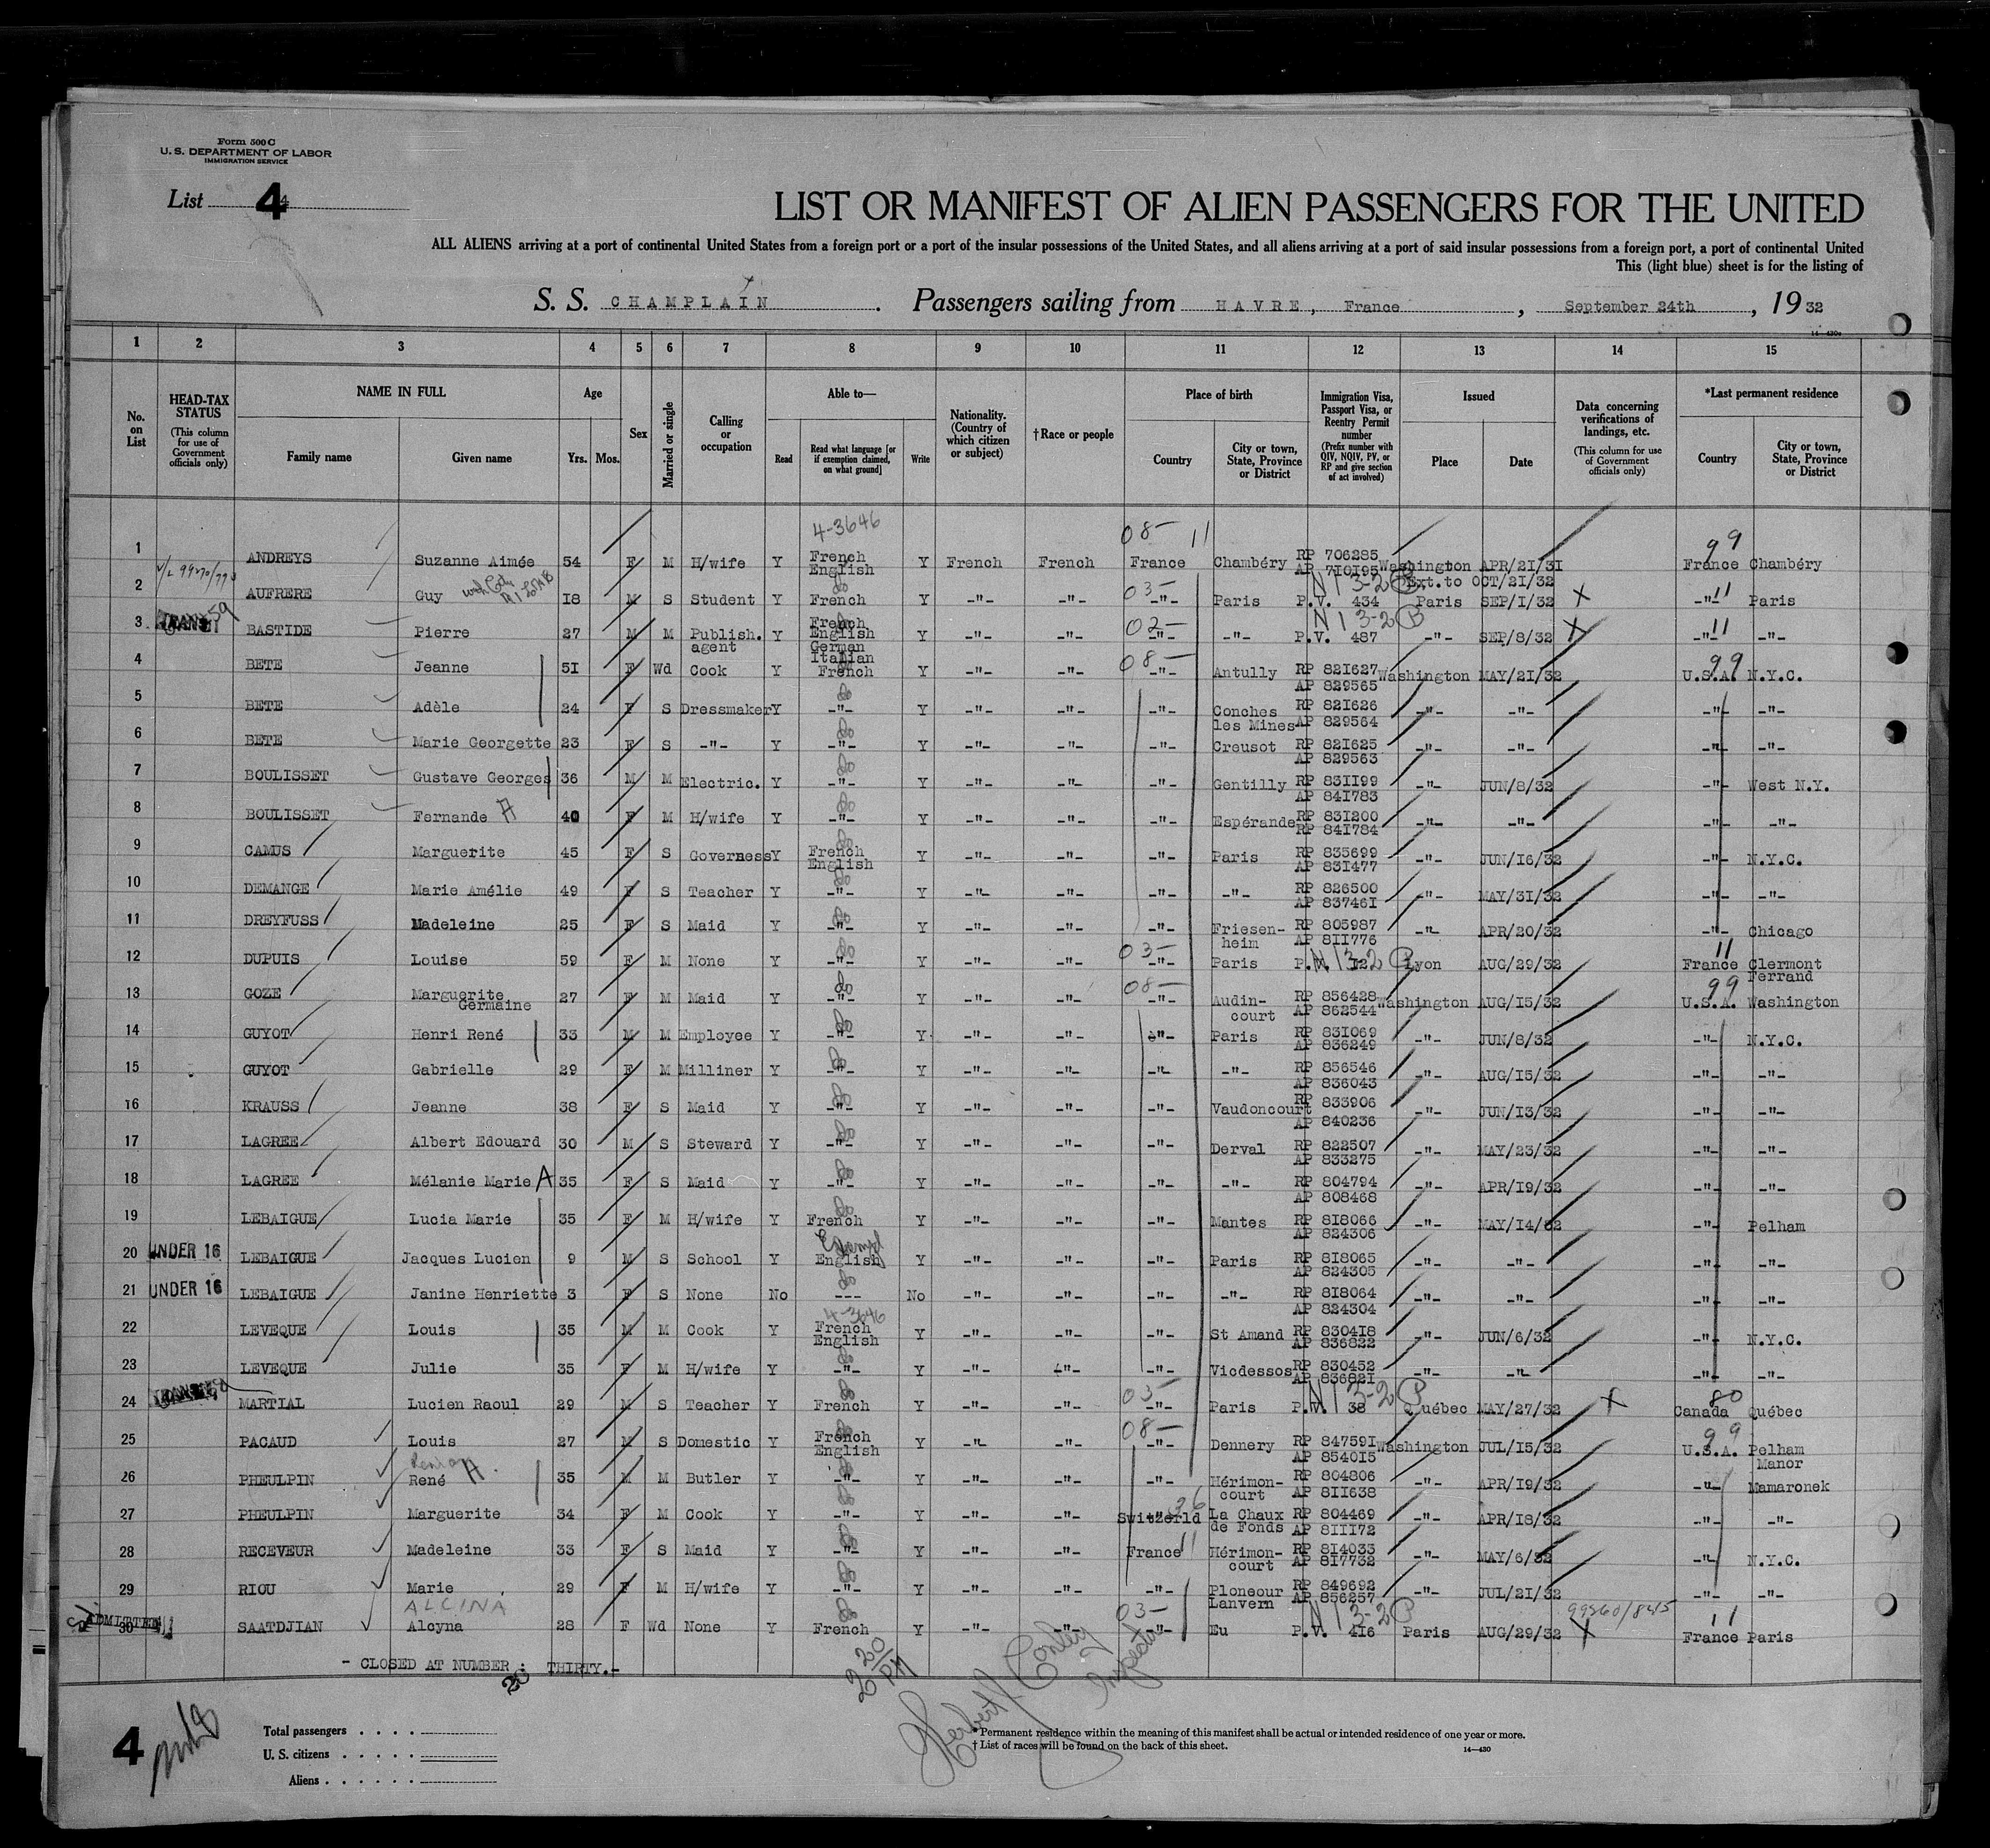 Form 500 C
U. S. DEPARTMENT OF LABOR
IMMIGRATION SERVICE
List 4
LIST OR MANIFEST OF ALIEN PASSENGERS FOR THE UNITED
ALL ALIENS arriving at a port of continental United States from a foreign port or a port of the insular possessions of the United States, and all aliens arriving at a port of said insular possessions from a foreign port, a port of continental United
This (light blue) sheet is for the listing of
S. S. CHAMPLAIN. Passengers sailing from HAVRE, France, September 24th, 1932
14—430a
1 2 3 4 5 6 7 8 9 10 11 12 13 14 15
No. on List
HEAD-TAX STATUS (This column for use of Government officials only)
NAME IN FULL Family name Given name
Age Yrs. Mos.
Sex
Married or single
Calling or occupation
Able to— Read Read what language [or if exemption claimed, on what ground] Write
Nationality. (Country of which citizen or subject)
†Race or people
Place of birth Country City or town, State, Province or District
Immigration Visa, Passport Visa, or Reentry Permit number (Prefix number with QIV, NQIV, PV, or RP and give section of act involved)
Issued Place Date
Data concerning verifications of landings, etc. (This column for use of Government officials only)
*Last permanent residence Country City or town, State, Province or District
4-3646 08- 11 99
1 ANDREYS Suzanne Aimée 54 F M H/wife Y French English Y French French France Chambéry RP 706285 AP 710195 Washington APR/21/31 Ext.to OCT/21/32 France Chambéry
2 AUFRERE Guy 18 M S Student Y French Y -"- -"- 03- -"- Paris P.V. 434 N 13-2 B Paris SEP/1/32 X -"- 11 Paris
3 BASTIDE Pierre 27 M M Publish. agent Y French English German Italian Y -"- -"- 02- -"- -"- P.V. 487 N 13-2 B -"- SEP/8/32 X -"- 11 Paris
4 BETE Jeanne 51 F Wd Cook Y French Y -"- -"- 08- -"- Antully RP 821627 AP 829565 Washington MAY/21/32 U.S.A. 99 N.Y.C.
5 BETE Adèle 24 F S Dressmaker Y -"- Y -"- -"- -"- Conches les Mines RP 821626 AP 829564 -"- -"- -"- -"-
6 BETE Marie Georgette 23 F S -"- Y -"- Y -"- -"- -"- Creusot RP 821625 AP 829563 -"- -"- -"- -"-
7 BOULISSET Gustave Georges 36 M M Electric. Y -"- Y -"- -"- -"- Gentilly RP 831199 AP 841783 -"- JUN/8/32 -"- West N.Y.
8 BOULISSET Fernande A 40 F M H/wife Y -"- Y -"- -"- -"- Espérande RP 831200 RP 841784 -"- -"- -"- -"-
9 CAMUS Marguerite 45 F S Governess Y French English Y -"- -"- -"- Paris RP 835699 AP 831477 -"- JUN/16/32 -"- N.Y.C.
10 DEMANGE Marie Amélie 49 F S Teacher Y -"- Y -"- -"- -"- -"- RP 826500 AP 837461 -"- MAY/31/32 -"- -"-
11 DREYFUSS Madeleine 25 F S Maid Y -"- Y -"- -"- -"- Friesenheim RP 805987 AP 811776 -"- APR/20/32 -"- Chicago
12 DUPUIS Louise 59 F M None Y -"- Y -"- -"- 03- -"- Paris P.V. 12 N 13-2 P Lyon AUG/29/32 11 France Clermont Ferrand
13 GOZE Marguerite Germaine 27 F M Maid Y -"- Y -"- -"- 08- -"- Audin-court RP 856428 AP 862544 Washington AUG/15/32 99 U.S.A. Washington
14 GUYOT Henri René 33 M M Employee Y -"- Y -"- -"- -"- Paris RP 831069 AP 836249 -"- JUN/8/32 -"- N.Y.C.
15 GUYOT Gabrielle 29 F M Milliner Y -"- Y -"- -"- -"- -"- RP 856546 AP 836043 -"- AUG/15/32 -"- -"-
16 KRAUSS Jeanne 38 F S Maid Y -"- Y -"- -"- -"- Vaudoncourt RP 833906 AP 840236 -"- JUN/13/32 -"- -"-
17 LAGREE Albert Edouard 30 M S Steward Y -"- Y -"- -"- -"- Derval RP 822507 AP 833275 -"- MAY/23/32 -"- -"-
18 LAGREE Mélanie Marie A 35 F S Maid Y -"- Y -"- -"- -"- -"- RP 804794 AP 808468 -"- APR/19/32 -"- -"-
19 LEBAIGUE Lucia Marie 35 F M H/wife Y French Y -"- -"- -"- Mantes RP 818066 AP 824306 -"- MAY/14/32 -"- Pelham
20 UNDER 16 LEBAIGUE Jacques Lucien 9 M S School Y English Y -"- -"- -"- Paris RP 818065 AP 824305 -"- -"- -"- -"-
21 UNDER 16 LEBAIGUE Janine Henriette 3 F S None No --- No -"- -"- -"- -"- RP 818064 AP 824304 -"- -"- -"- -"-
22 LEVEQUE Louis 35 M M Cook Y 4-3646 French English Y -"- -"- -"- St Amand RP 830418 AP 836822 -"- JUN/6/32 -"- N.Y.C.
23 LEVEQUE Julie 35 F M H/wife Y -"- Y -"- -"- -"- Vicdessos RP 830452 AP 836821 -"- -"- -"- -"-
24 MARTIAL Lucien Raoul 29 M S Teacher Y French Y -"- -"- 03- -"- Paris P.V. 38 N 13-2 P Québec MAY/27/32 X 80 Canada Québec
25 PACAUD Louis 27 M S Domestic Y French English Y -"- -"- 08- -"- Dennery RP 847591 AP 854015 Washington JUL/15/32 99 U.S.A. Pelham Manor
26 PHEULPIN René A 35 M M Butler Y -"- Y -"- -"- -"- Hérimon-court RP 804806 AP 811638 -"- APR/19/32 -"- Mamaronek
27 PHEULPIN Marguerite 34 F M Cook Y -"- Y -"- -"- Switzerld La Chaux de Fonds RP 804469 AP 811172 -"- APR/18/32 -"- -"-
28 RECEVEUR Madeleine 33 F S Maid Y -"- Y -"- -"- France Hérimon-court RP 814033 AP 817732 -"- MAY/6/32 -"- N.Y.C.
29 RIOU Marie 29 F M H/wife Y -"- Y -"- -"- -"- Ploneour Lanvern RP 849692 AP 856257 -"- JUL/21/32 -"- -"-
ALCINA
ADMITTED 30 SAATDJIAN Alcyna 28 F Wd None Y French Y -"- -"- 03- -"- Eu P.V. 416 N 13-2 P Paris AUG/29/32 X 11 France Paris
- CLOSED AT NUMBER : THIRTY.-
30
2 20/PM
Herbert J. Conley Inspector
4
Total passengers . . . .
U. S. citizens . . . . .
Aliens . . . . . .
*Permanent residence within the meaning of this manifest shall be actual or intended residence of one year or more.
† List of races will be found on the back of this sheet.
14—430